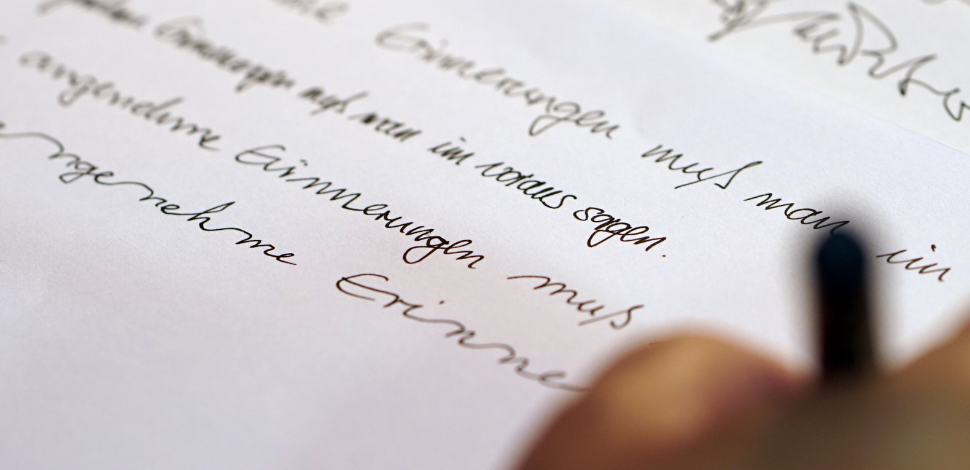 Erinnerungen muß man im
Erinnerungen muß man im voraus sagen.
angenehme Erinnerungen muß
ngenehme Erinne